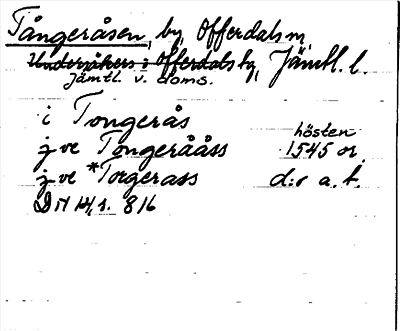 Tångeråsen, by, Offerdals sn,
Undersåkers o Offerdals tg, Jämtl. l.
Jämtl. v. doms.
i Tongerås
hösten
j ve Tongerååss 1545 or.
j ve *Torgerass d:o a. t.
DN 14, s. 816